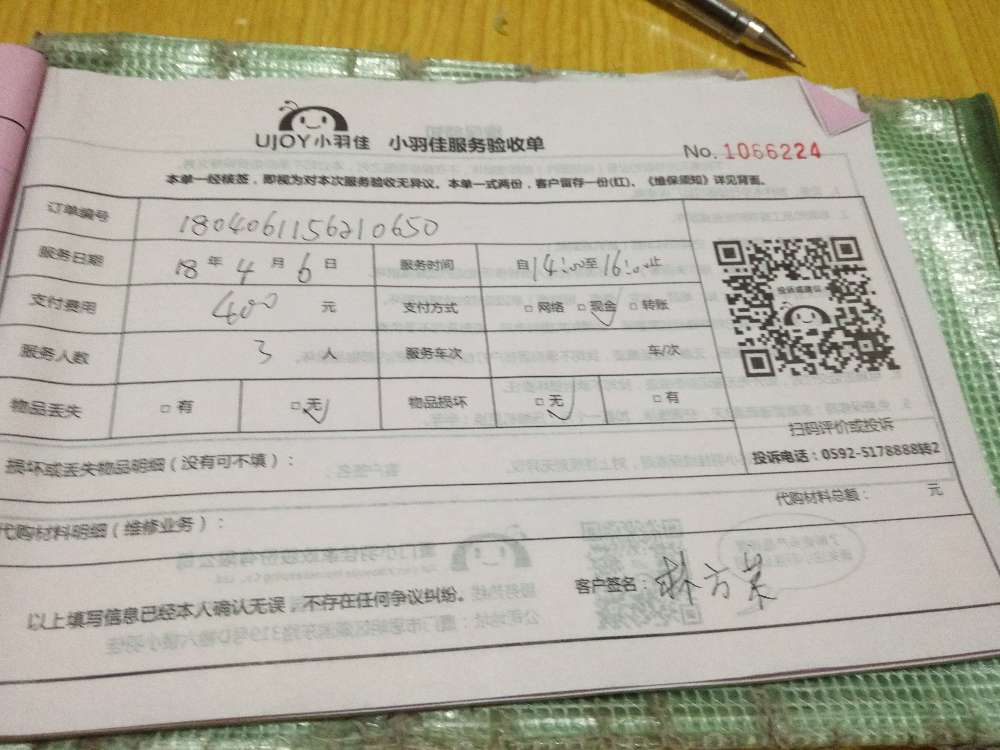 UJOY小羽佳 小羽佳服务验收单
No. 1066224
本单一经核签，即视为对本次服务验收无异议。本单一式两份，客户留存一份(红)、《维保须知》详见背面。
订单编号 1804061156210650
服务日期 18 年 4 月 6 日 服务时间 自14:00至16:00止
支付费用 400 元 支付方式 □ 网络 □ 现金 □ 转账
服务人数 3 人 服务车次 车/次
物品丢失 □ 有 □ 无 物品损坏 □ 无 □ 有
投诉或建议
扫码评价或投诉
投诉电话：0592-5178888转2
损坏或丢失物品明细（没有可不填）：
代购材料明细（维修业务）：
代购材料总额： 元
以上填写信息已经本人确认无误，不存在任何争议纠纷。
客户签名：林方荣